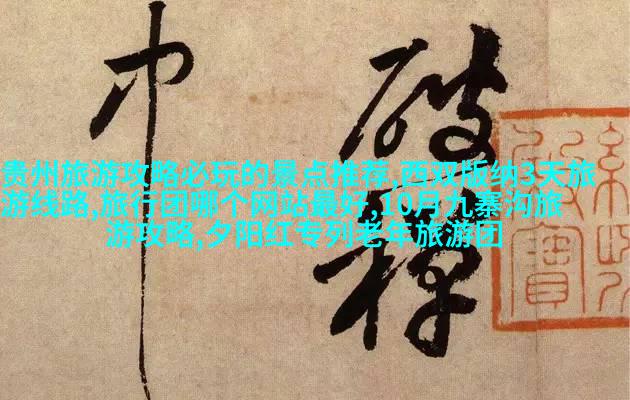 贵州旅游攻略必玩的景点推荐,西双版纳3天旅
游线路,旅行团哪个网站最好,10月九寨沟旅
游攻略,夕阳红专列老年旅游团
破
巾